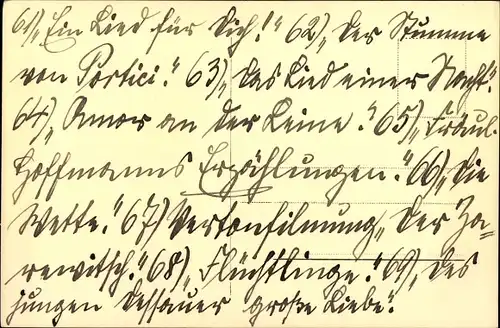 61) „Ein Lied für Dich!“ 62) „Der Stumme
von Portici.“ 63) „Das Lied einer Nacht“.
64) „Amor an der Leine.“ 65) „Fräul.
Hoffmanns Erzählungen.“ 66) „Die
Wette.“ 67) Vertonfilmung „Der Za-
rewitsch.“ 68) „Flüchtlinge.“ 69) „Des
jungen Dessauer große Liebe“.